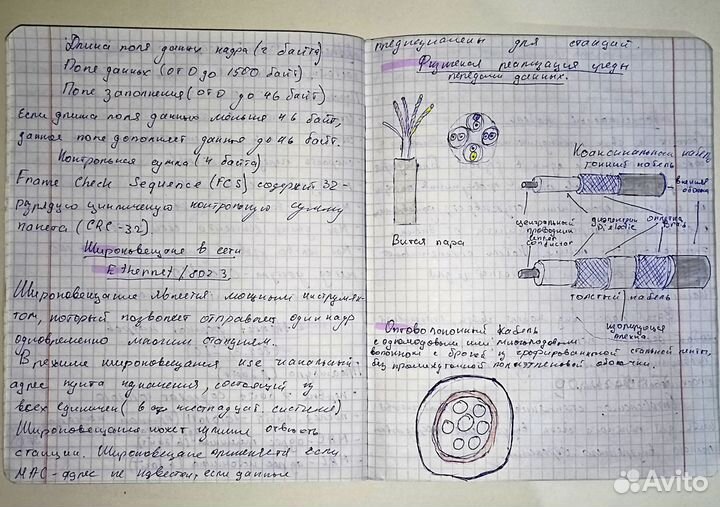 Длина поля данных кадра (2 байта)
Поле данных (от 0 до 1500 байт)
Поле заполнения (от 0 до 46 байт)
Если длина поля данных меньше 46 байт,
данное поле дополняет данные до 46 байт.
Контрольная сумма (4 байта)
Frame Check Sequence (FCS) содержит 32-
разрядную цикличную контрольную сумму
пакета (CRC-32).
Широковещание в сети
Ethernet/802 3,
Широковещание является мощным инструмен-
том, который позволяет отправлять один кадр
одновременно многим станциям.
В режиме широковещания используется
адрес пункта назначения, состоящий из
всех единичек (в шестнадцат. системе)
Широковещание может
станции. Широковещание применяется если
MAC-адрес не известен, если данные
предназначены для станций.
Физическая реализация среды
передачи данных.
Витая пара
Коаксиальный кабель
тонкий кабель
внешняя
оболочка
центральный
проводник
center
conductor
диэлектрик
Dielectic
оплетка
Braid
толстый кабель
изолирующая
пленка.
Оптоволоконный кабель
с одномодовым или многомодовым
волокном с броней из гофрированной стальной ленты,
без промежуточной полиэтиленовой оболочки.
Avito